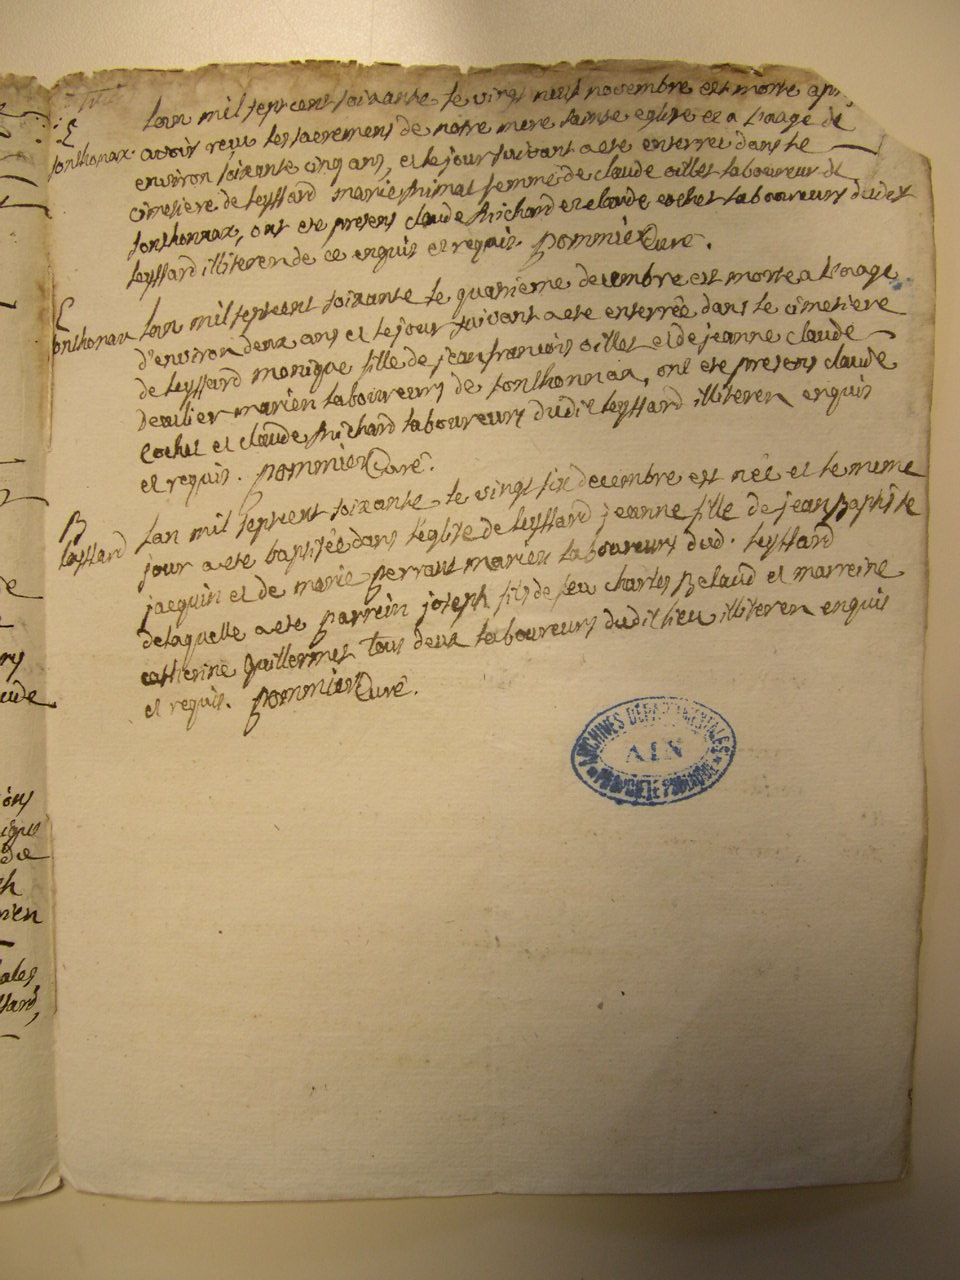 E
sonthonax
lan mil sept cent soixante le vingt neuf novembre est morte apr
avoir reçu les sacremens de notre mere sainte eglise et a l'aage de
environ soixante cinq ans, et le jour suivant a ete enterrée dans le
cimetiere de leyssard marie femme de claude oillet laboureur de
sonthonnax, ont ete presens claude Michard et claude cochet laboureurs dudit
leyssard illiteren de ce enquis et requis. pommier Curé.
E
sonthonax
lan mil sept cent soixante le quatrieme decembre est morte a l'aage
d'environ deux ans et le jour suivant a ete enterrée dans le cimetiere
de leyssard monique fille de jean francois oillet et de jeanne claude
marien laboureurs de sonthonnax, ont ete presens claude
Cochet et claude Michard laboureurs dudit leyssard illiteren enquis
et requis. pommier Curé.
B
leyssard
lan mil sept cent soixante le vingt six decembre est née et le meme
jour a ete baptisée dans l'eglise de leyssard jeanne fille de jean Baptiste
jacquin et de marie perraut marien laboureurs dud. leyssard
de laquelle a ete parrein joseph fils de feu charles Belaud et marreine
catherine Guillermet tous deux laboureurs dudit lieu illiteren enquis
et requis. pommier Curé.
ARCHIVES DÉPARTEMENTALES
AIN
PROPRIÉTÉ PUBLIQUE